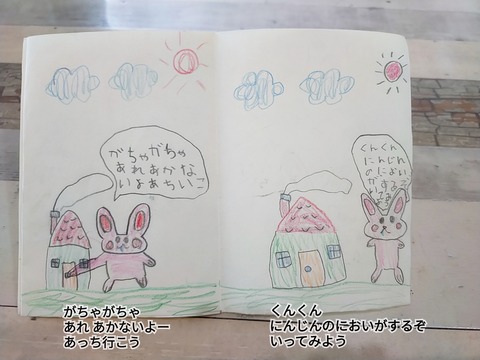 がちゃがちゃ
あれあかな
いよあちいこ
くんくん
にんじん
のにおい
がする
がちゃがちゃ
あれ あかないよー
あっち行こう
くんくん
にんじんのにおいがするぞ
いってみよう